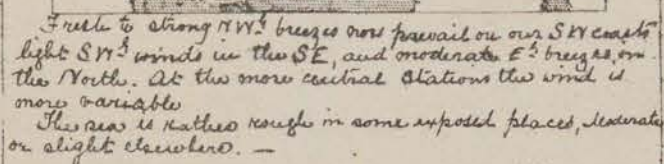 Fresh to strong NWly breezes now prevail on our SW coasts
light SWly winds in the SE, and moderate Ely breezes, on
the North. At the more central stations the wind is
more variable
The sea is rather rough in some exposed places, moderate
or slight elsewhere. —